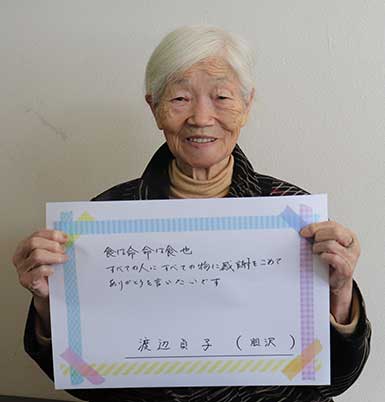 食は命 命は食也
すべての人に すべての物に感謝をこめて
ありがとうを言いたいです
渡辺貞子 (胆沢)